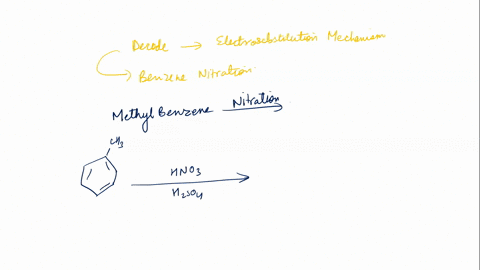 Decode → Electrosubstitution Mechanism
Benzene Nitration.
Methyl Benzene Nitration
CH3
HNO3
H2SO4